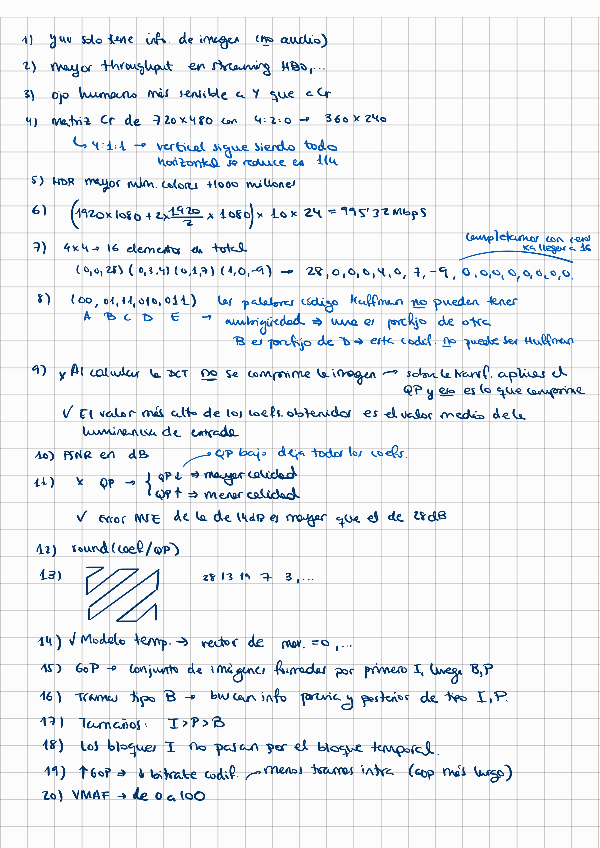 1) yuv solo tiene info. de imagen (no audio)
2) mayor throughput en streaming HBO,...
3) ojo humano más sensible a Y que a Cr
4) matriz Cr de 720x480 con 4:2:0 → 360x240
↳ 4:1:1 → vertical sigue siendo todo
horizontal se reduce en 1/4
5) HDR mayor núm. colores +1000 millones
6) (1920x1080 + 2x 1920/2 x 1080) x 10 x 24 = 995'32 Mbps
completamos con ceros
xa llegar a 16
7) 4x4 → 16 elementos en total
(0,0,28) (0,3,4) (0,1,7) (1,0,-9) → 28,0,0,0,4,0,7,-9,0,0,0,0,0,0,0,0.
8) (00, 01, 11, 010, 011) Las palabras código Huffman no pueden tener
A B C D E → ambigüedad ⇒ una es prefijo de otra
B es prefijo de D → esta codif. no puede ser Huffman
9) x Al calcular la DCT no se comprime la imagen → sobre la transf. aplicas el
QP y eso es lo que comprime
✓ El valor más alto de los coefs. obtenidos es el valor medio de la
luminancia de entrada
10) PSNR en dB
QP bajo deja todos los coefs.
11) x QP → { QP↓ ⇒ mayor calidad
QP↑ ⇒ menor calidad
✓ Error MSE de la de 14dB es mayor que el de 28dB
12) round(coef/QP)
13) 28 13 19 7 3,...
14) ✓ Modelo temp. → vector de mov. = 0,...
15) GoP → conjunto de imágenes formadas por primero I, luego B,P
16) Tramas tipo B → buscan info previa y posterior de tipo I,P.
17) Tamaños: I>P>B
18) Los bloques I no pasan por el bloque temporal.
19) ↑GoP → ↓ bitrate codif. menos tramas intra (GOP más largo)
20) VMAF → de 0 a 100